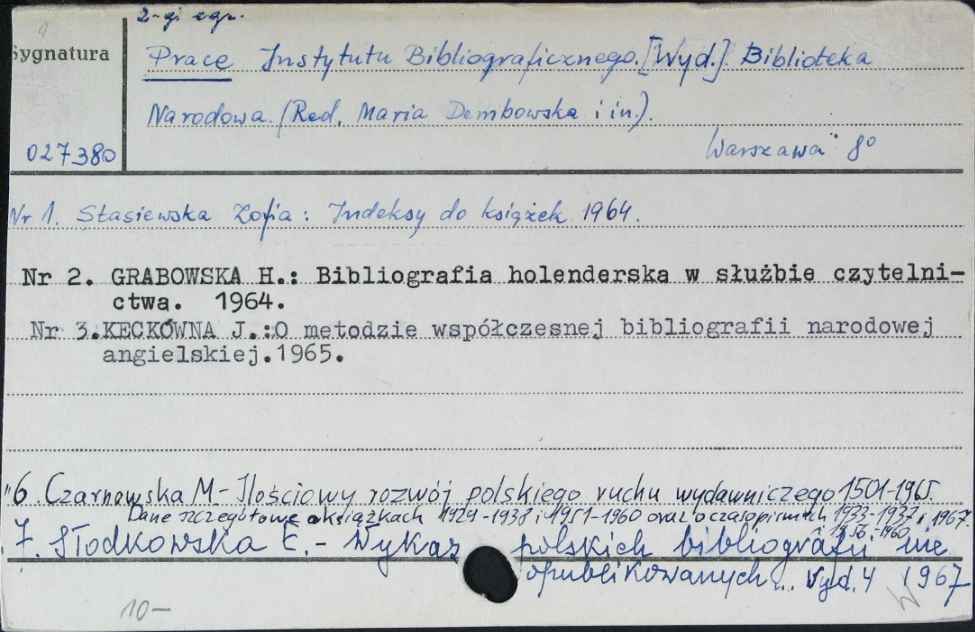 2-gi egz.
Sygnatura
Prace Instytutu Bibliograficznego. [Wyd.] Biblioteka
Narodowa. (Red. Maria Dembowska i in.).
027380
Warszawa 8º
Nr 1. Stasiewska Zofia: Indeksy do książek 1964.
Nr 2. GRABOWSKA H.: Bibliografia holenderska w służbie czytelni-
ctwa. 1964.
Nr 3. KECKÓWNA J.: O metodzie współczesnej bibliografii narodowej
angielskiej. 1965.
"6. Czarnowska M - Ilościowy rozwój polskiego ruchu wydawniczego 1501-1965.
Dane szczegółowe o książkach 1929-1938 i 1951-1960 oraz o czasopismach 1933-1937 i 1967
i 1956-1960
7. Słodkowska E. - Wykaz polskich bibliografii nie
opublikowanych... Wyd. 4 1967
10-
W